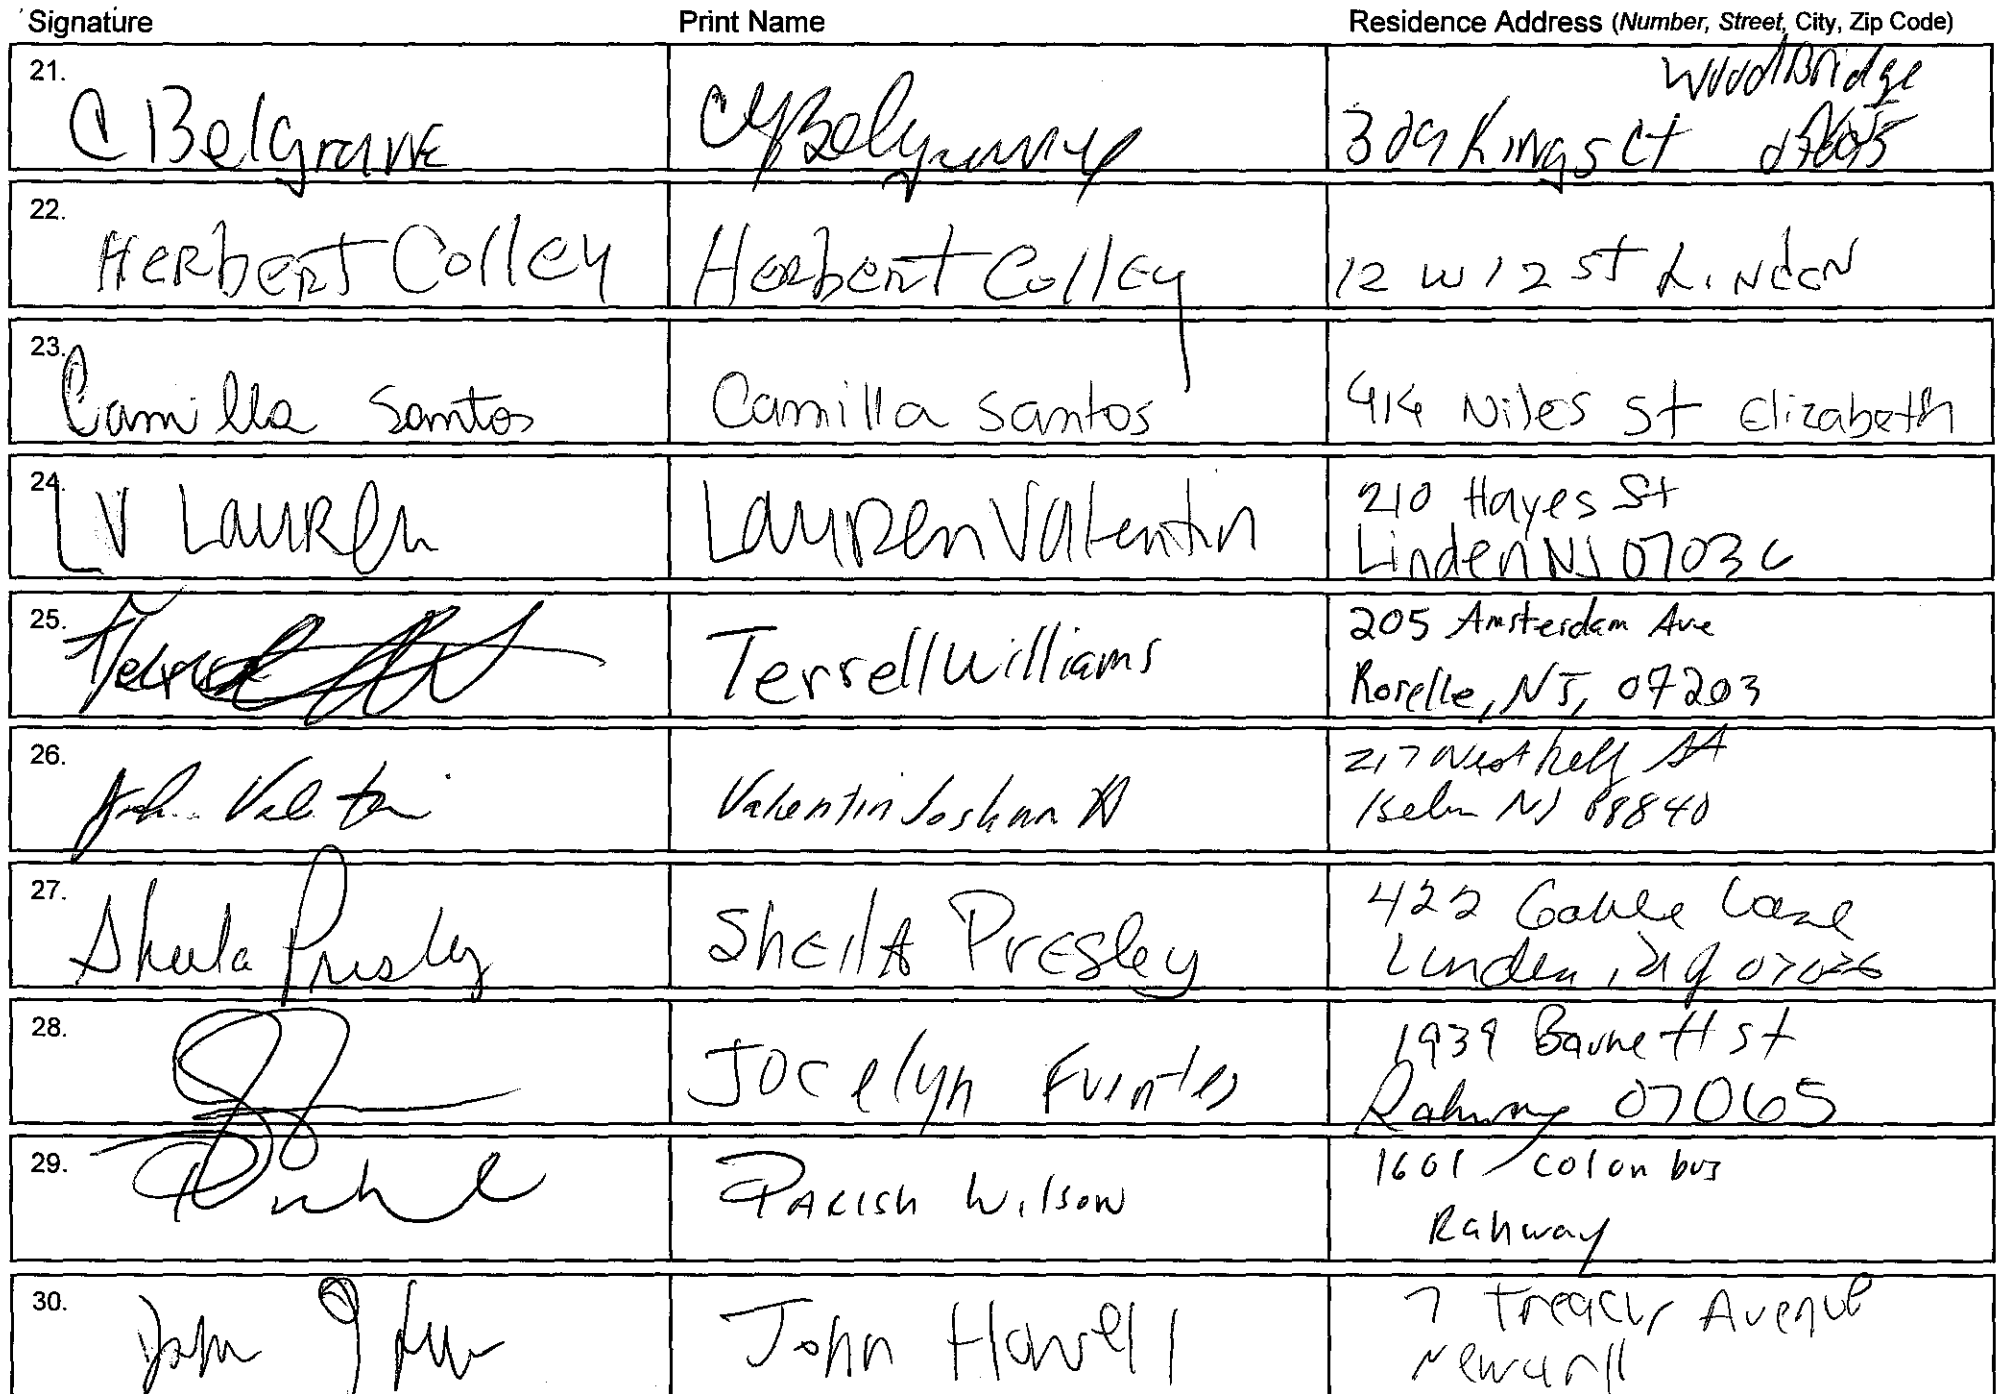 Signature Print Name Residence Address (Number, Street, City, Zip Code)
21. C Belgrave Belgrave 389 Kings Ct WoodBridge
22. Herbert Colley Herbert Colley 12 W 12 St Linden
23. Camilla Santos Camilla Santos 914 Niles St Elizabeth
24. LV Lauren Lauren Valentin 210 Hayes St
Linden NJ 07036
25. Terrell Williams 205 Amsterdam Ave
Roselle, NJ, 07203
26. Valentin Joshua 217 St
Iselin NJ 08840
27. Sheila Presley Sheila Presley 422 Lane
Linden, NJ 07036
28. Jocelyn Fuentes 1939 Barnett St
Rahway 07065
29. Parish Wilson 1601 Colonbus
Rahway
30. John Howell 7 Treacy Avenue
Newark